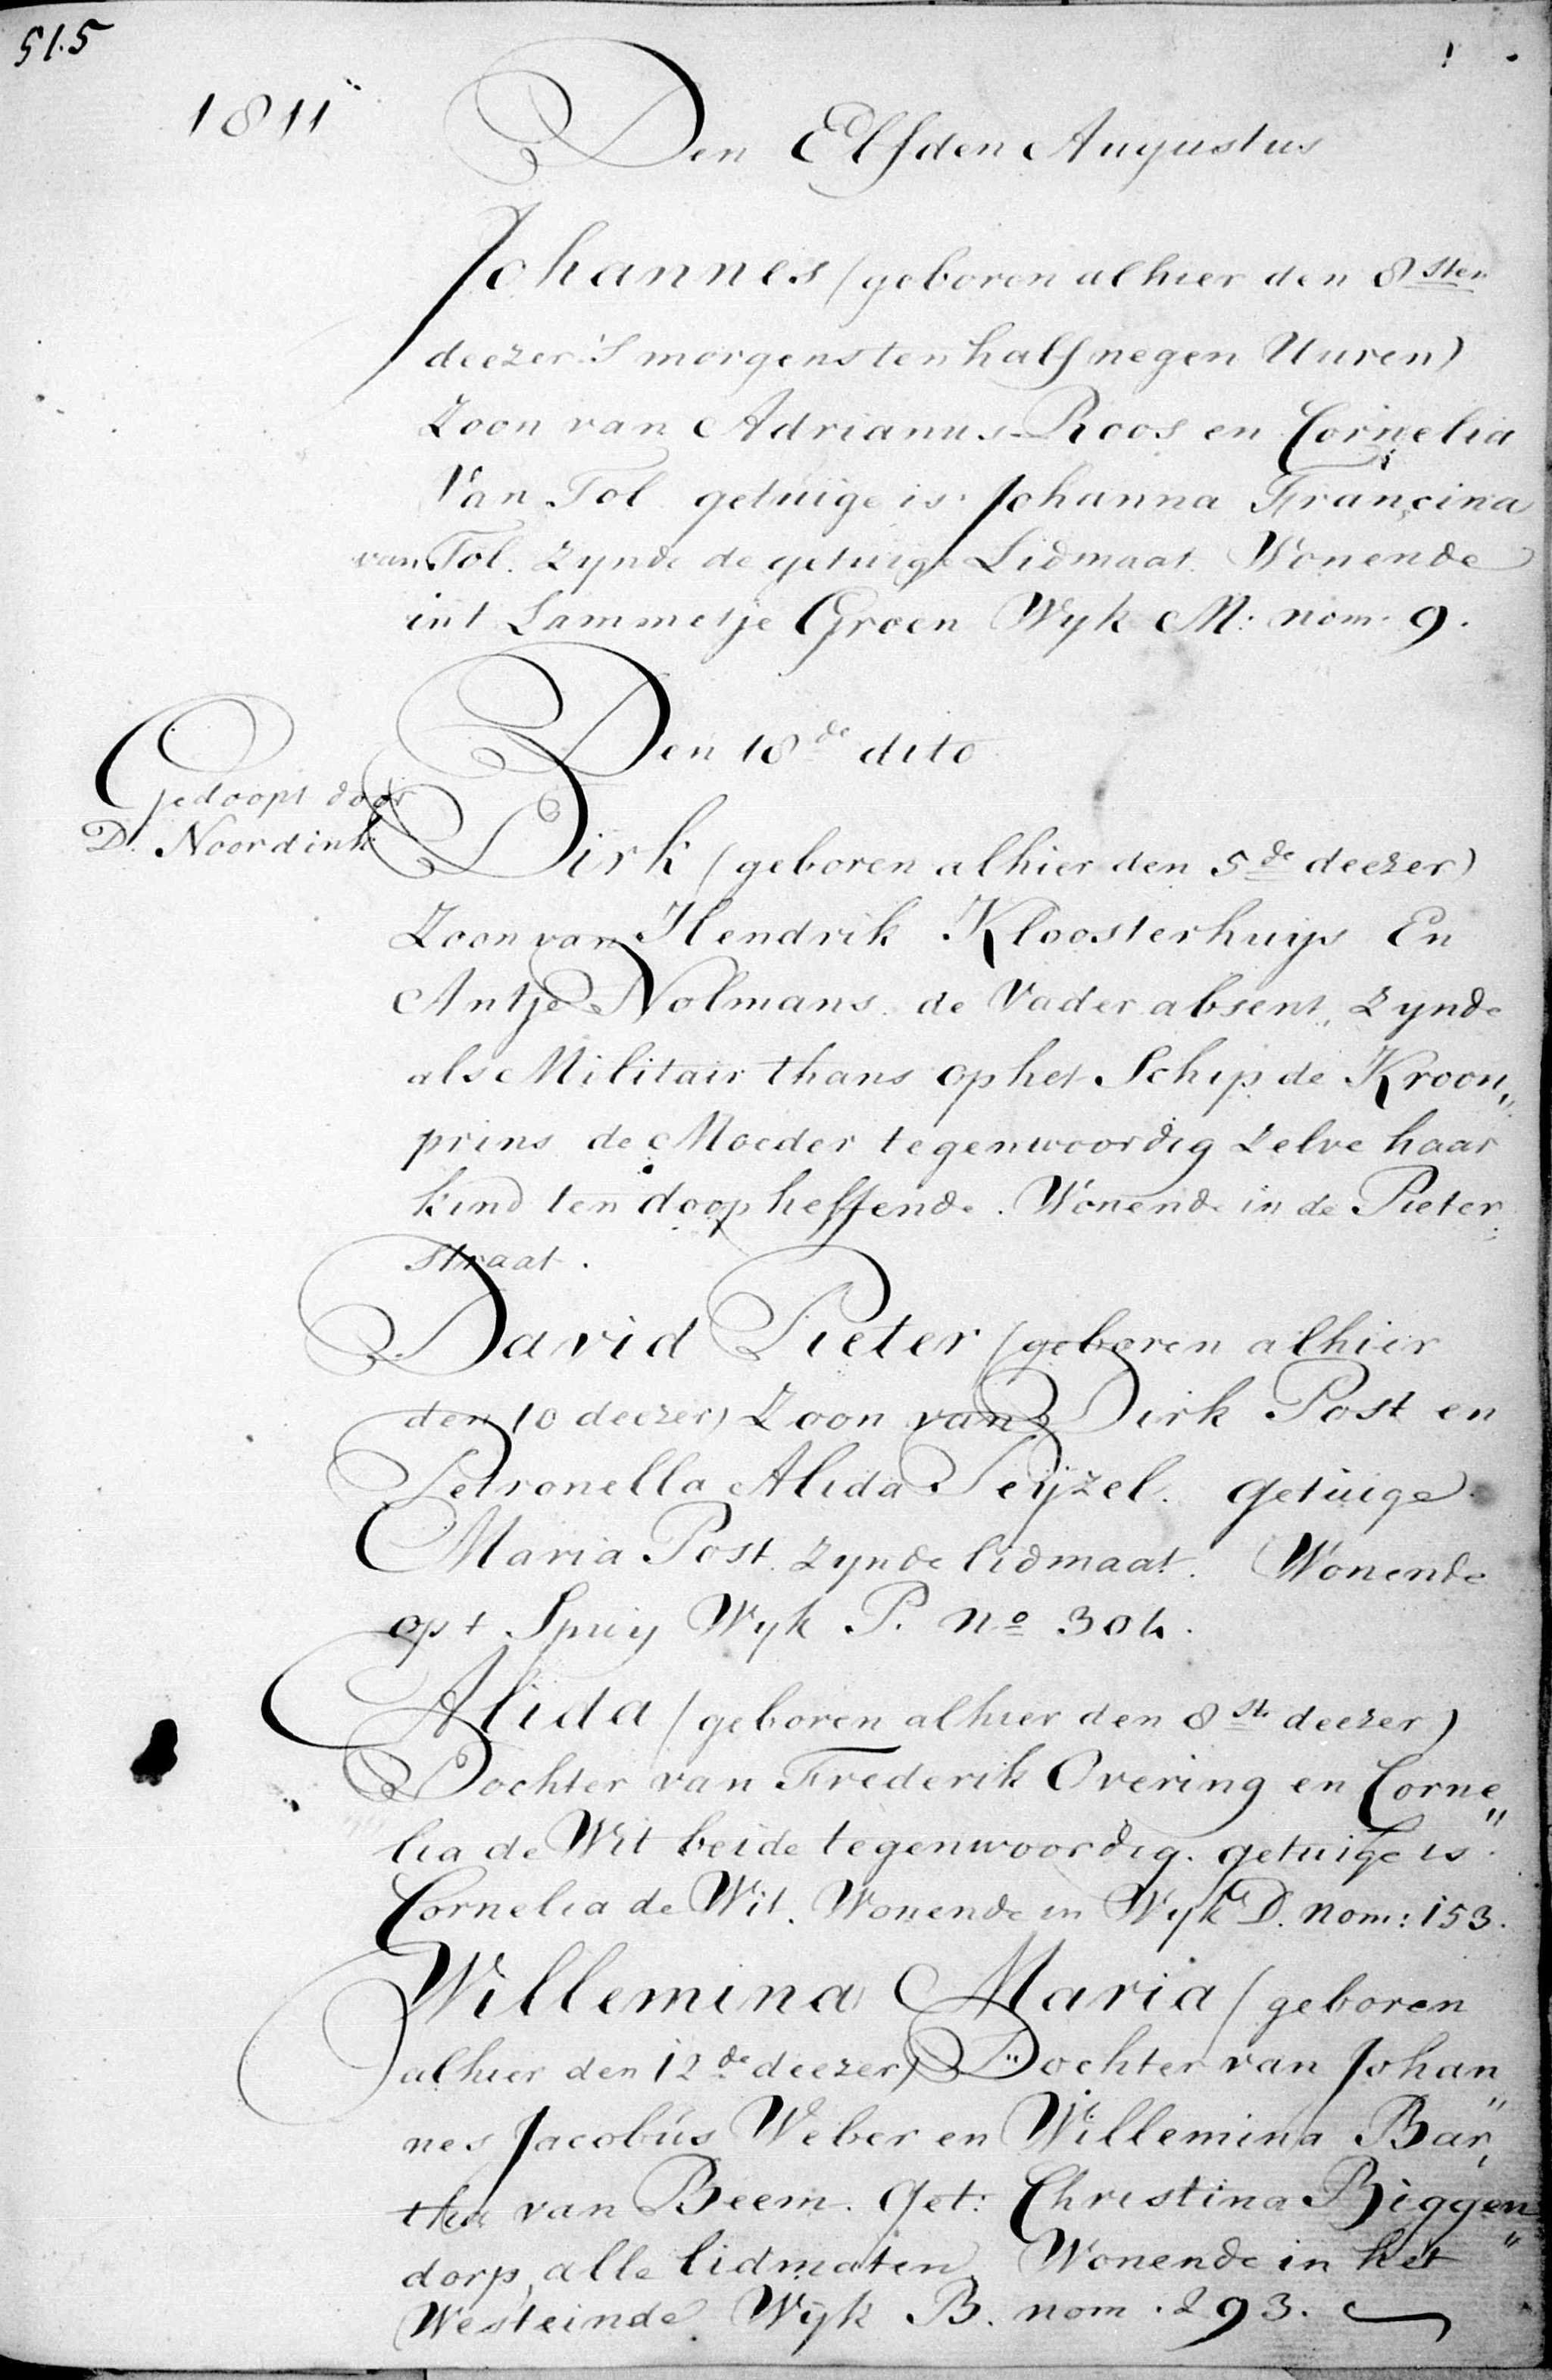 515
1811
Den Elfden Augustus
Johannes (geboren alhier den 8sten
deezer 's morgens ten half negen Uuren)
Zoon van Adrianus Roos en Cornelia
Van Tol getuige is Johanna Francina
van Tol. zynde de getuige Lidmaat. Wonende
int Lammetje Groen Wyk M: nom. 9.
Den 18de dito
Gedoopt door
D. Noordink
Dirk (geboren alhier den 5de deezer)
Zoon van Hendrik Kloosterhuijs En
Antje Nolmans. de Vader absent, zynde
als Militair thans op het Schip de Kroon„
prins de Moeder tegenwoordig zelve haar
kind ten doop heffende. Wonende in de Pieter
straat.
David Pieter (geboren alhier
den 10 deezer) Zoon van Dirk Post en
Petronella Alida Peijzel. getuige
Maria Post. zynde lidmaat. Wonende
opt Spuij Wyk P. No 304.
Alida (geboren alhier den 8ste deezer)
Dochter van Frederik Overing en Corne„
lia de Wit beide tegenwoordig. getuige is
Cornelia de Wit. Wonende in Wyk D. nom: 153.
Willemina Maria (geboren
alhier den 12de deezer) Dochter van Johan„
nes Jacobus Weber en Willemina Bar„
tha van Beem. Get: Christina Biggen„
dorp, alle lidmaten, Wonende in het
Westeinde Wijk B. nom. 293.